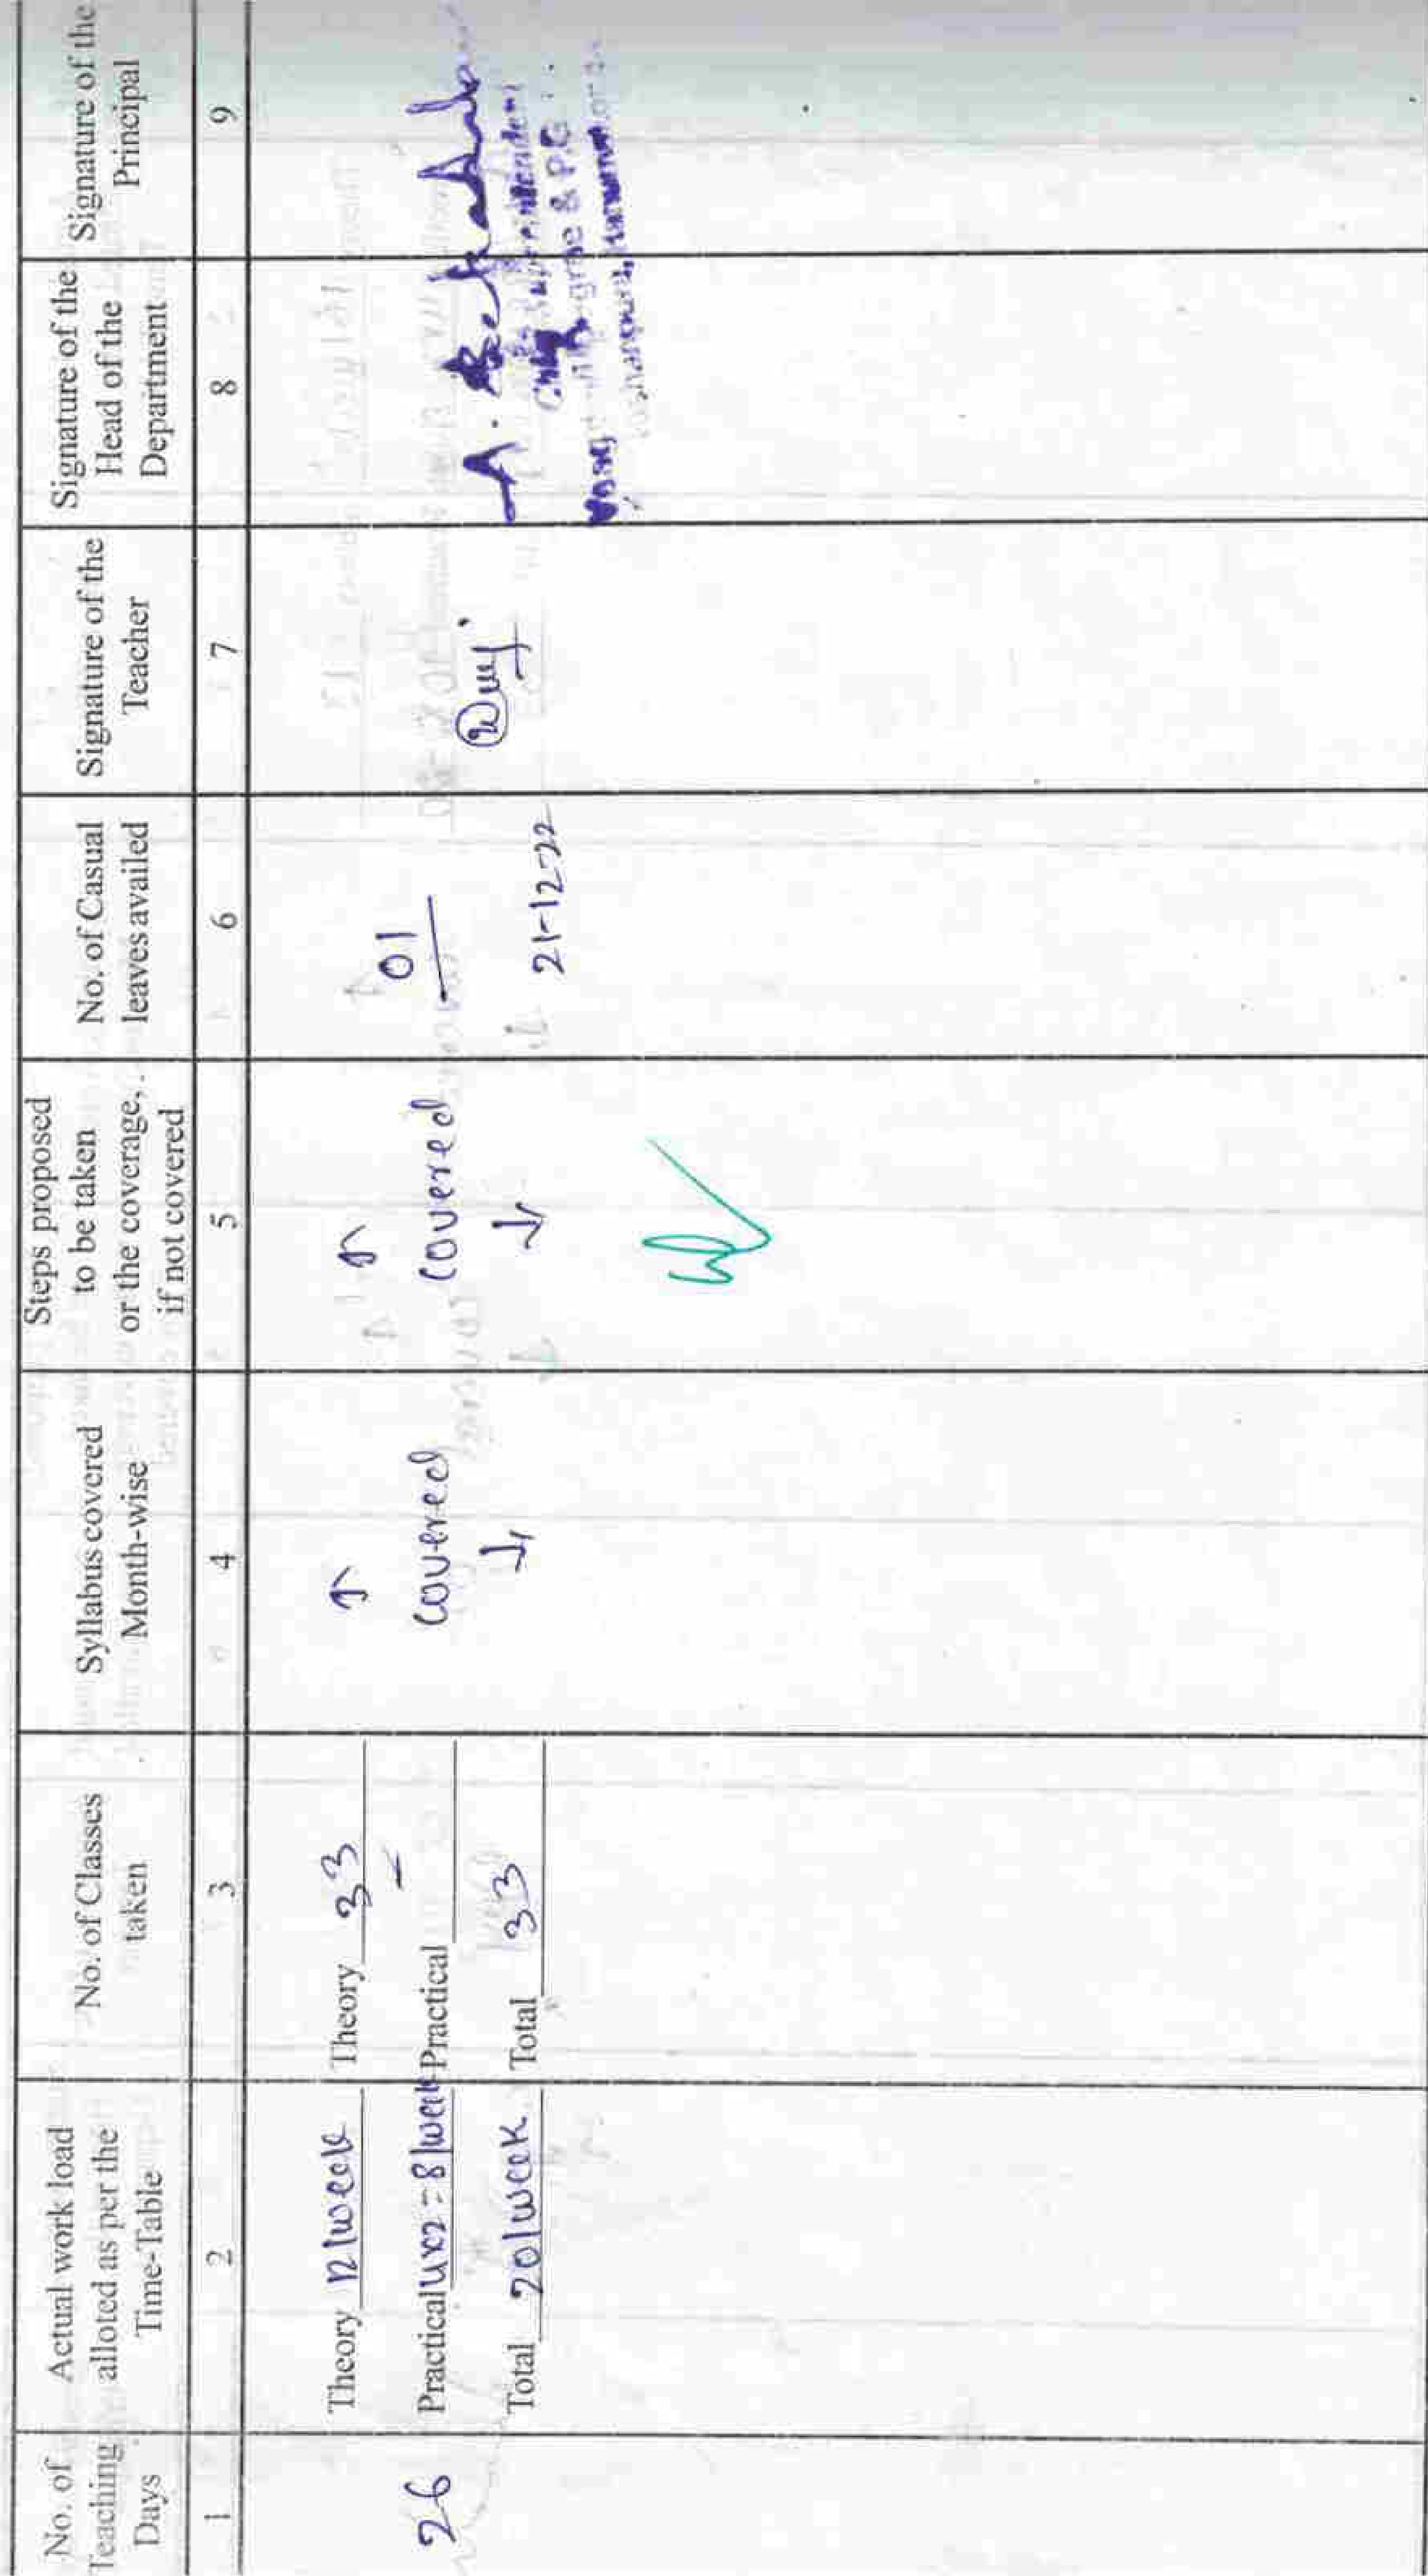 No. of
Teaching
Days
Actual work load
alloted as per the
Time-Table
No. of Classes
taken
Syllabus covered
Month-wise
Steps proposed
to be taken
or the coverage,
if not covered
No. of Casual
leaves availed
Signature of the
Teacher
Signature of the
Head of the
Department
Signature of the
Principal
1
2
3
4
5
6
7
8
9
26
Theory 12/week
Practical 4x2=8/week
Total 20/week
Theory 33
Practical -
Total 33
↑
covered
↓
↑
covered
↓
01
21-12-22